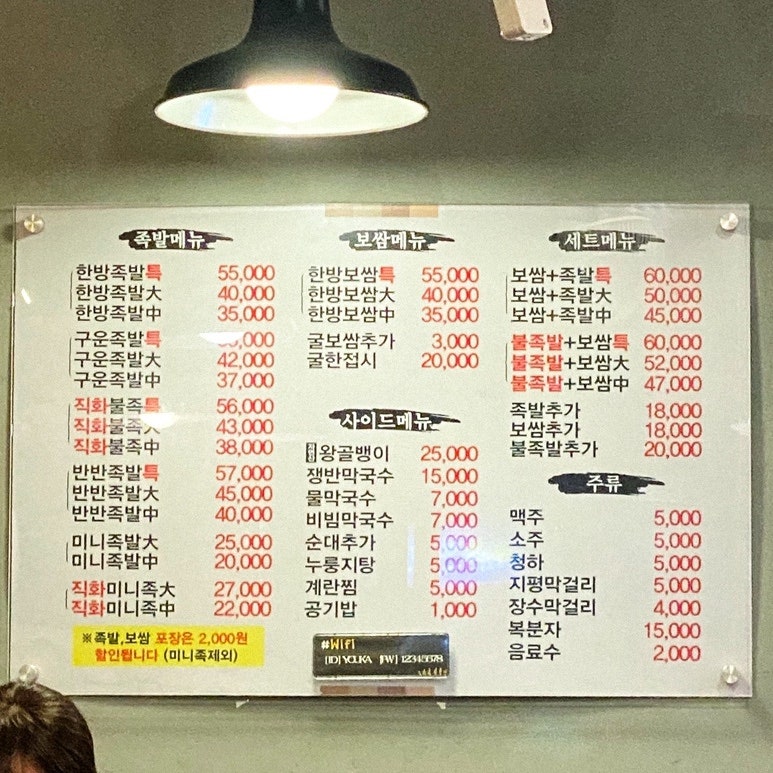 족발메뉴
한방족발특 55,000
한방족발大 40,000
한방족발中 35,000
구운족발특
구운족발大 42,000
구운족발中 37,000
직화불족특 56,000
직화불족大 43,000
직화불족中 38,000
반반족발특 57,000
반반족발大 45,000
반반족발中 40,000
미니족발大 25,000
미니족발中 20,000
직화미니족大 27,000
직화미니족中 22,000
※족발,보쌈 포장은 2,000원
할인됩니다 (미니족제외)
보쌈메뉴
한방보쌈특 55,000
한방보쌈大 40,000
한방보쌈中 35,000
굴보쌈추가 3,000
굴한접시 20,000
사이드메뉴
왕골뱅이 25,000
쟁반막국수 15,000
물막국수 7,000
비빔막국수 7,000
순대추가 5,000
누룽지탕 5,000
계란찜 5,000
공기밥 1,000
#Wifi
[ID] YOUKA [PW] 12345678
세트메뉴
보쌈+족발특 60,000
보쌈+족발大 50,000
보쌈+족발中 45,000
불족발+보쌈특 60,000
불족발+보쌈大 52,000
불족발+보쌈中 47,000
족발추가 18,000
보쌈추가 18,000
불족발추가 20,000
주류
맥주 5,000
소주 5,000
청하 5,000
지평막걸리 5,000
장수막걸리 4,000
복분자 15,000
음료수 2,000